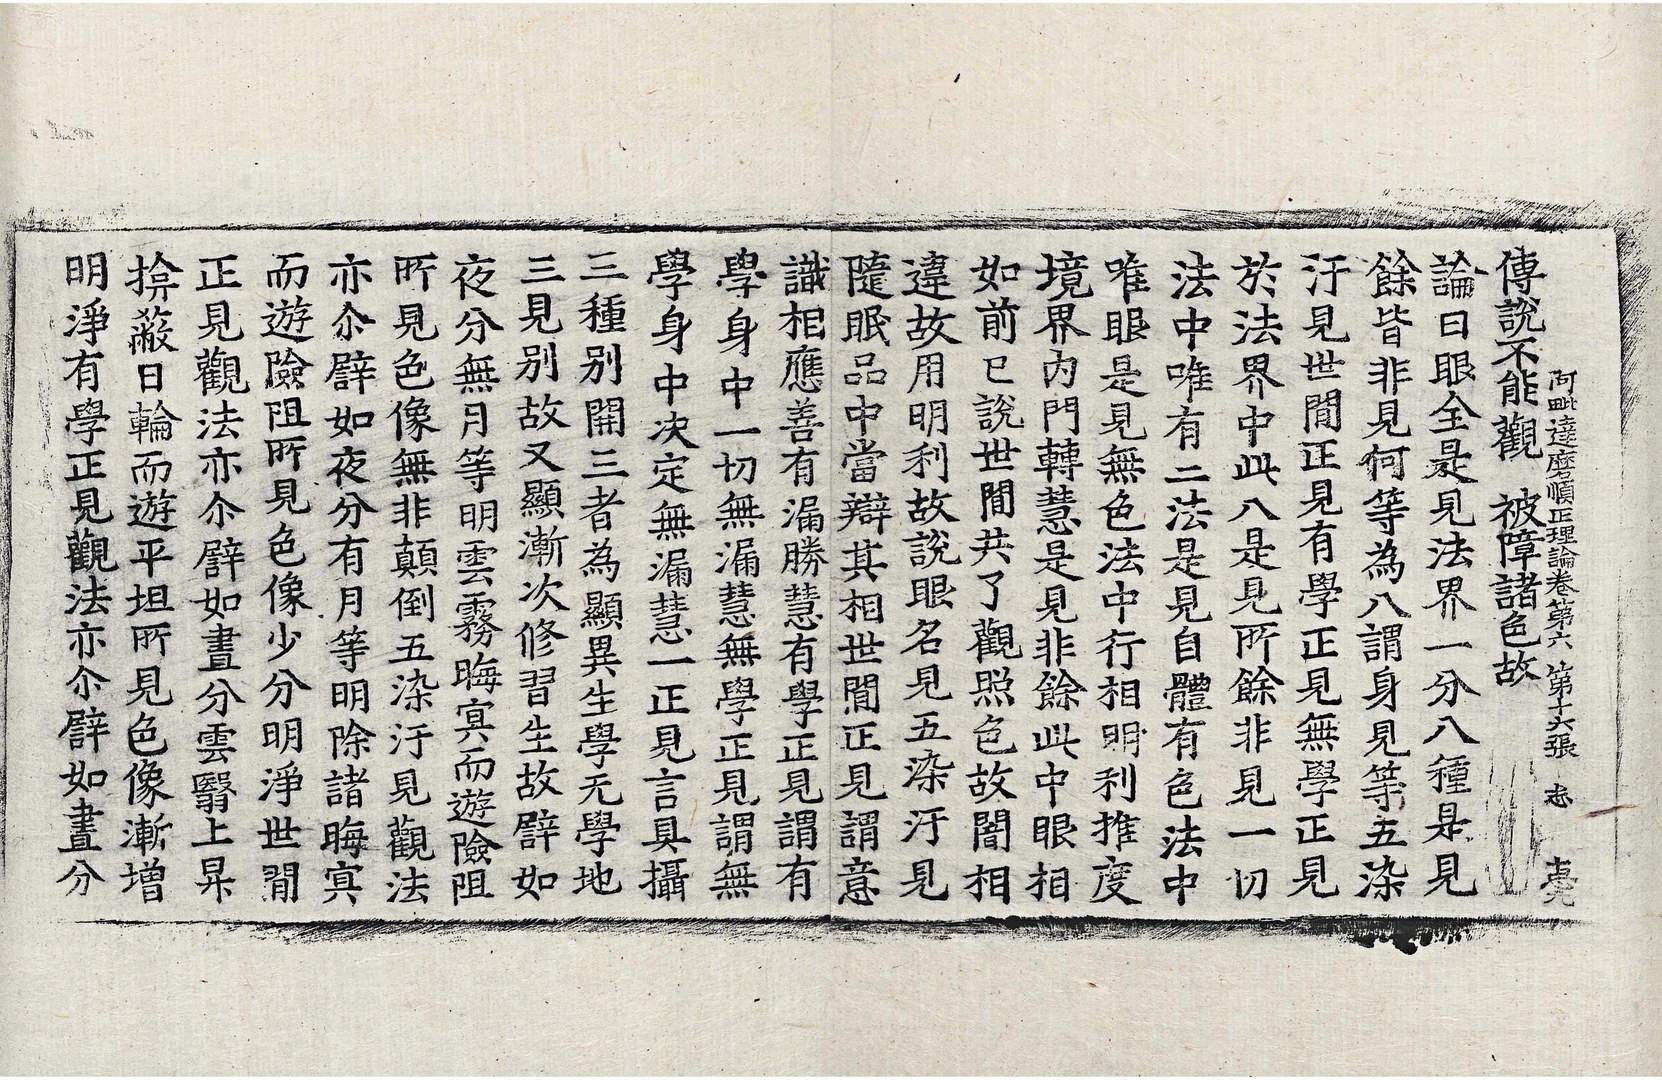 阿毗達磨順正理論卷第六 第十六張 志
傳說不能觀 被障諸色故
論曰眼全是見法界一分八種是見
餘皆非見何等為八謂身見等五染
汙見世閒正見有學正見無學正見
於法界中此八是見所餘非見一切
法中唯有二法是見自體有色法中
唯眼是見無色法中行相明利推度
境界內門轉慧是見非餘此中眼相
如前已說世閒共了觀照色故闇相
違故用明利故說眼名見五染汙見
隨眠品中當辯其相世閒正見謂意
識相應善有漏勝慧有學正見謂有
學身中一切無漏慧無學正見謂無
學身中决定無漏慧一正見言具攝
三種别開三者為顯異生學无學地
三見别故又顯漸次修習生故譬如
夜分無月等明雲霧晦㝠而遊險阻
所見色像無非顛倒五染汙見觀法
亦尒譬如夜分有月等明除諸晦㝠
而遊險阻所見色像少分明淨世閒
正見觀法亦尒譬如晝分雲翳上昇
揜蔽日輪而遊平坦所見色像漸增
明淨有學正見觀法亦尒譬如晝分